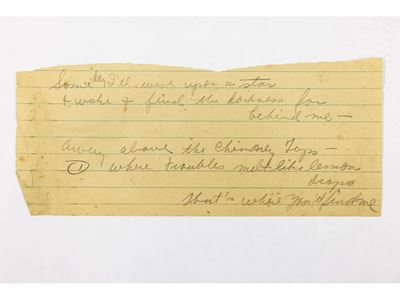 Some day I'll wish upon a star
& wake & find the darkness far
behind me —
Away above the Chimney Tops —
① where troubles melt like lemon
drops
that's where you'll find me